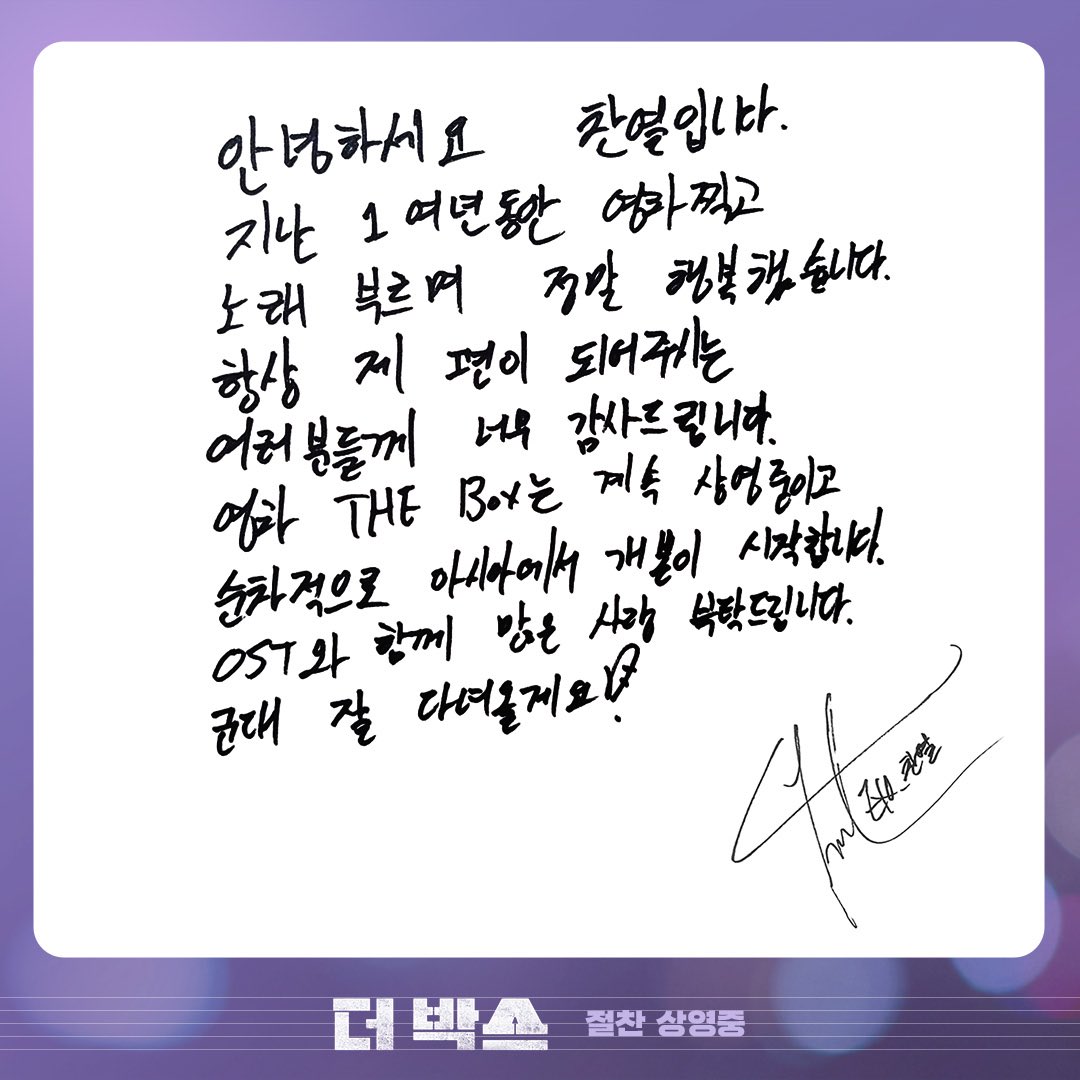 안녕하세요 찬열입니다.
지난 1여년동안 영화찍고
노래 부르며 정말 행복했습니다.
항상 제 편이 되어주시는
여러분들께 너무 감사드립니다.
영화 THE Box는 계속 상영중이고
순차적으로 아시아에서 개봉이 시작합니다.
OST와 함께 많은 사랑 부탁드립니다.
군대 잘 다녀올게요!
EXO_찬열
더 박스 절찬 상영중